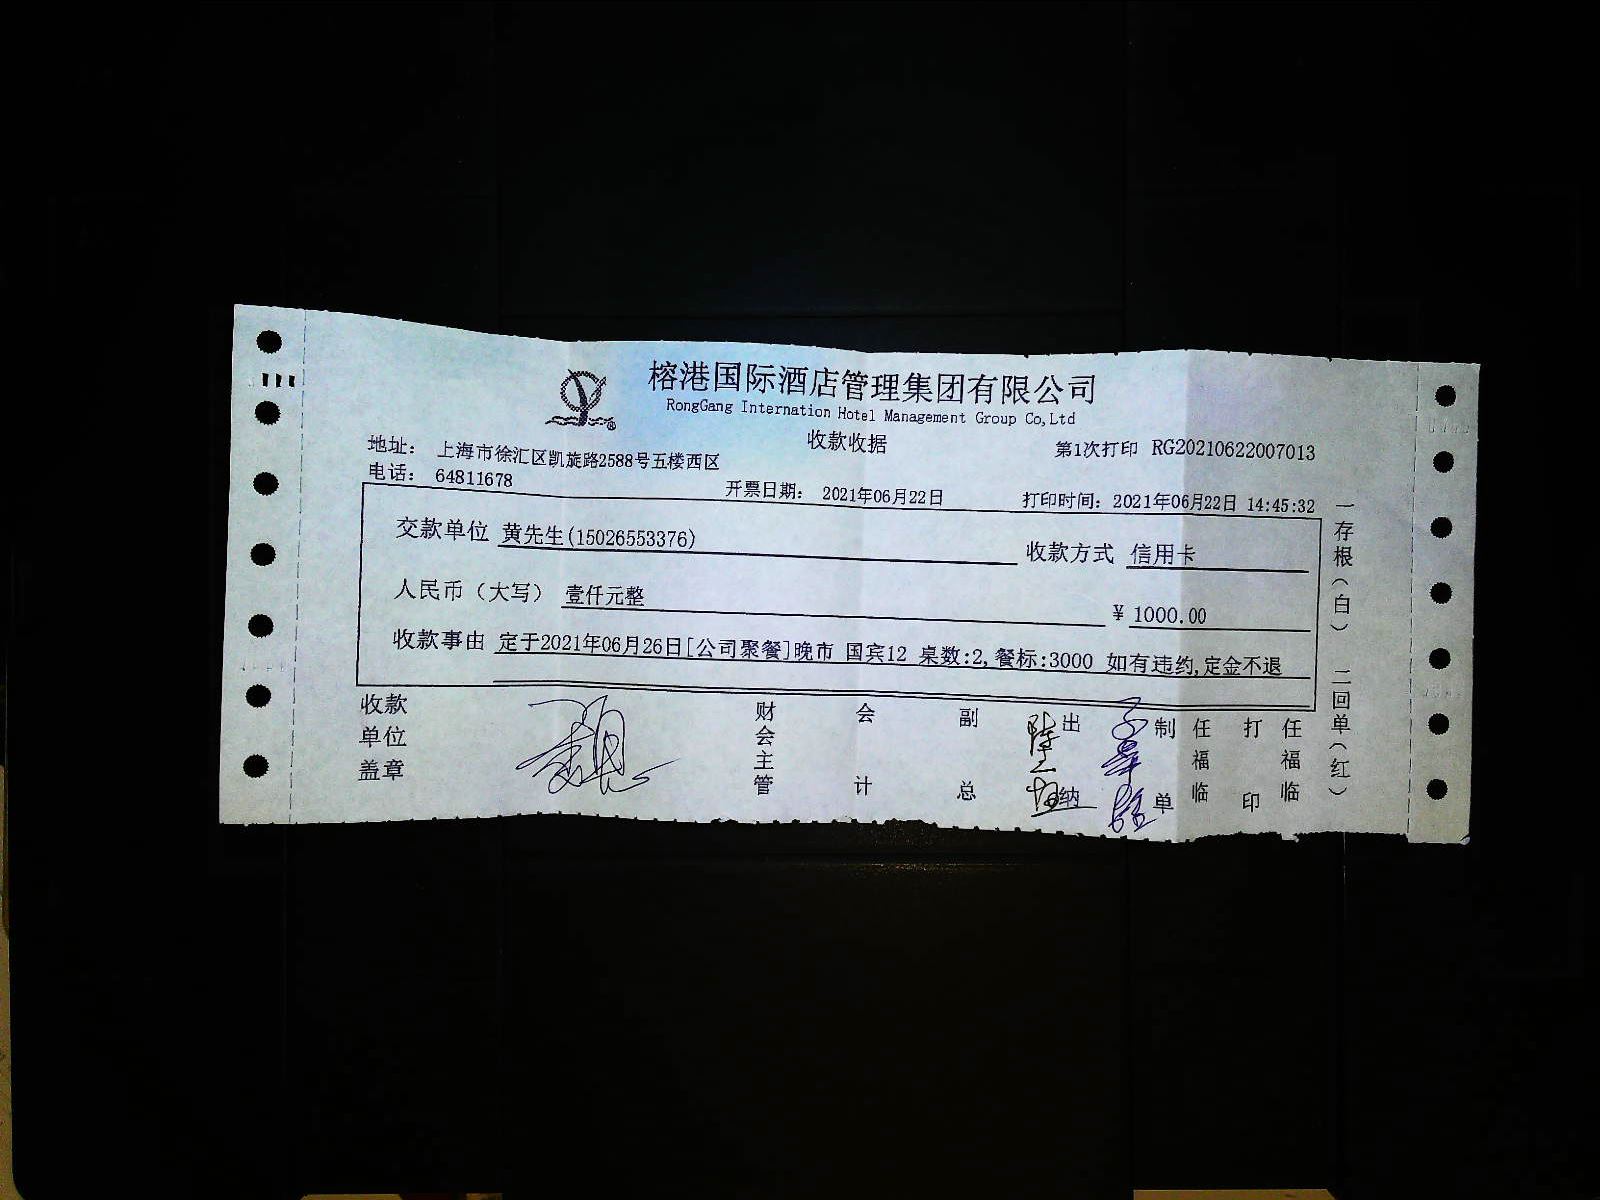 榕港国际酒店管理集团有限公司
RongGang Internation Hotel Management Group Co,Ltd
收款收据
第1次打印 RG20210622007013
地址： 上海市徐汇区凯旋路2588号五楼西区
电话： 64811678
开票日期： 2021年06月22日
打印时间： 2021年06月22日 14:45:32
交款单位 黄先生(15026553376)
收款方式 信用卡
人民币（大写） 壹仟元整
¥ 1000.00
收款事由 定于2021年06月26日[公司聚餐]晚市 国宾12 桌数:2,餐标:3000 如有违约,定金不退
收款
单位
盖章
财会主管
会计
副总
出纳
制单
任福临
打印
任福临
一存根（白） 二回单（红）